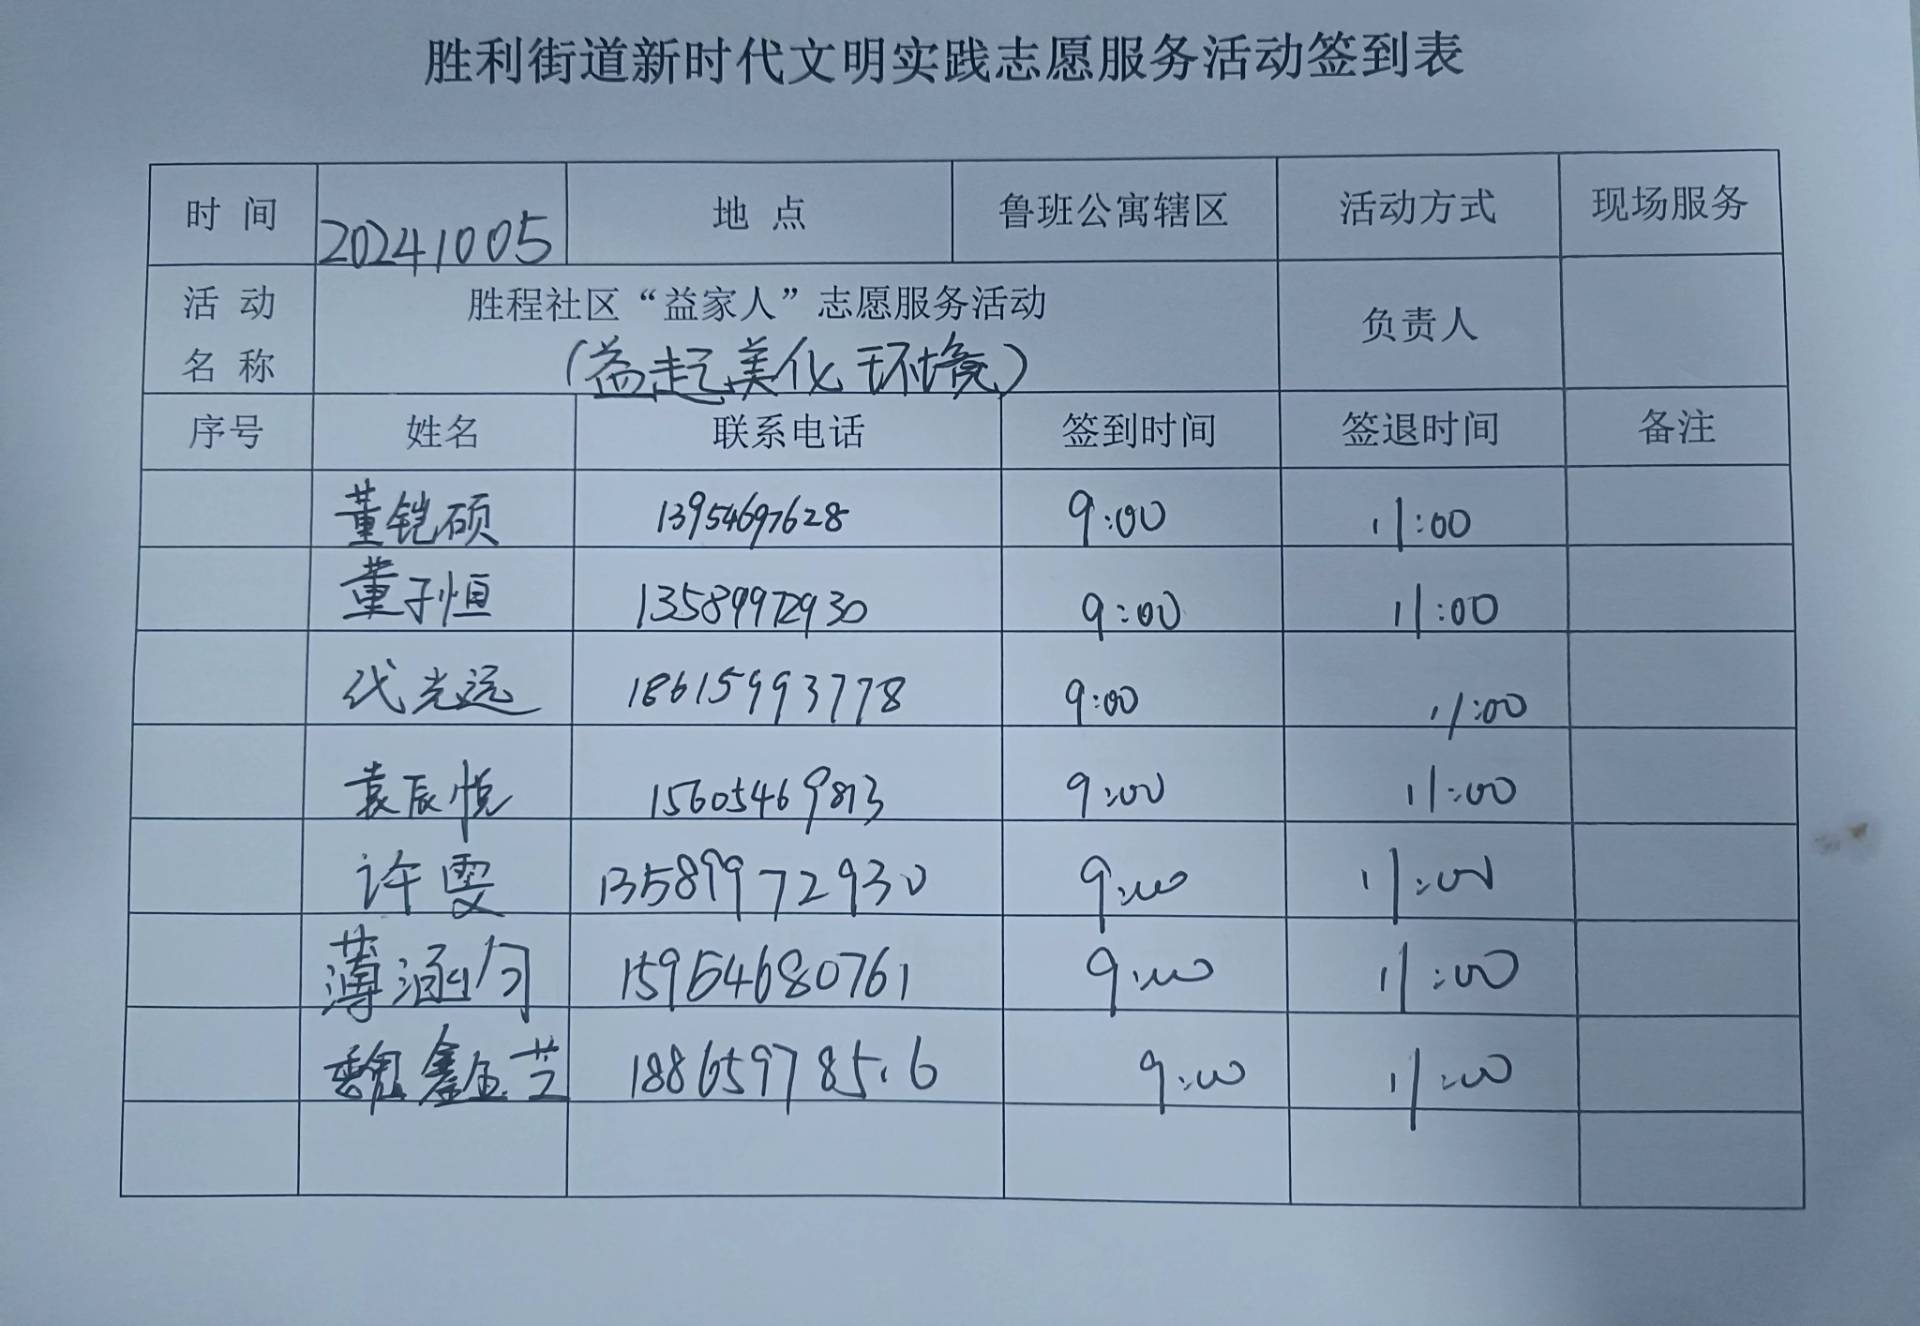 胜利街道新时代文明实践志愿服务活动签到表
时 间 20241005 地 点 鲁班公寓辖区 活动方式 现场服务
活 动 名 称 胜程社区“益家人”志愿服务活动 负责人
(益起美化环境)
序号 姓名 联系电话 签到时间 签退时间 备注
董铠硕 13954697628 9:00 11:00
董子恒 13589972930 9:00 11:00
代光远 18615993778 9:00 11:00
袁辰悦 15605469813 9:00 11:00
许雯 13589972930 9:00 11:00
薄涵匀 15954680761 9:00 11:00
魏鑫芸 9:00 11:00